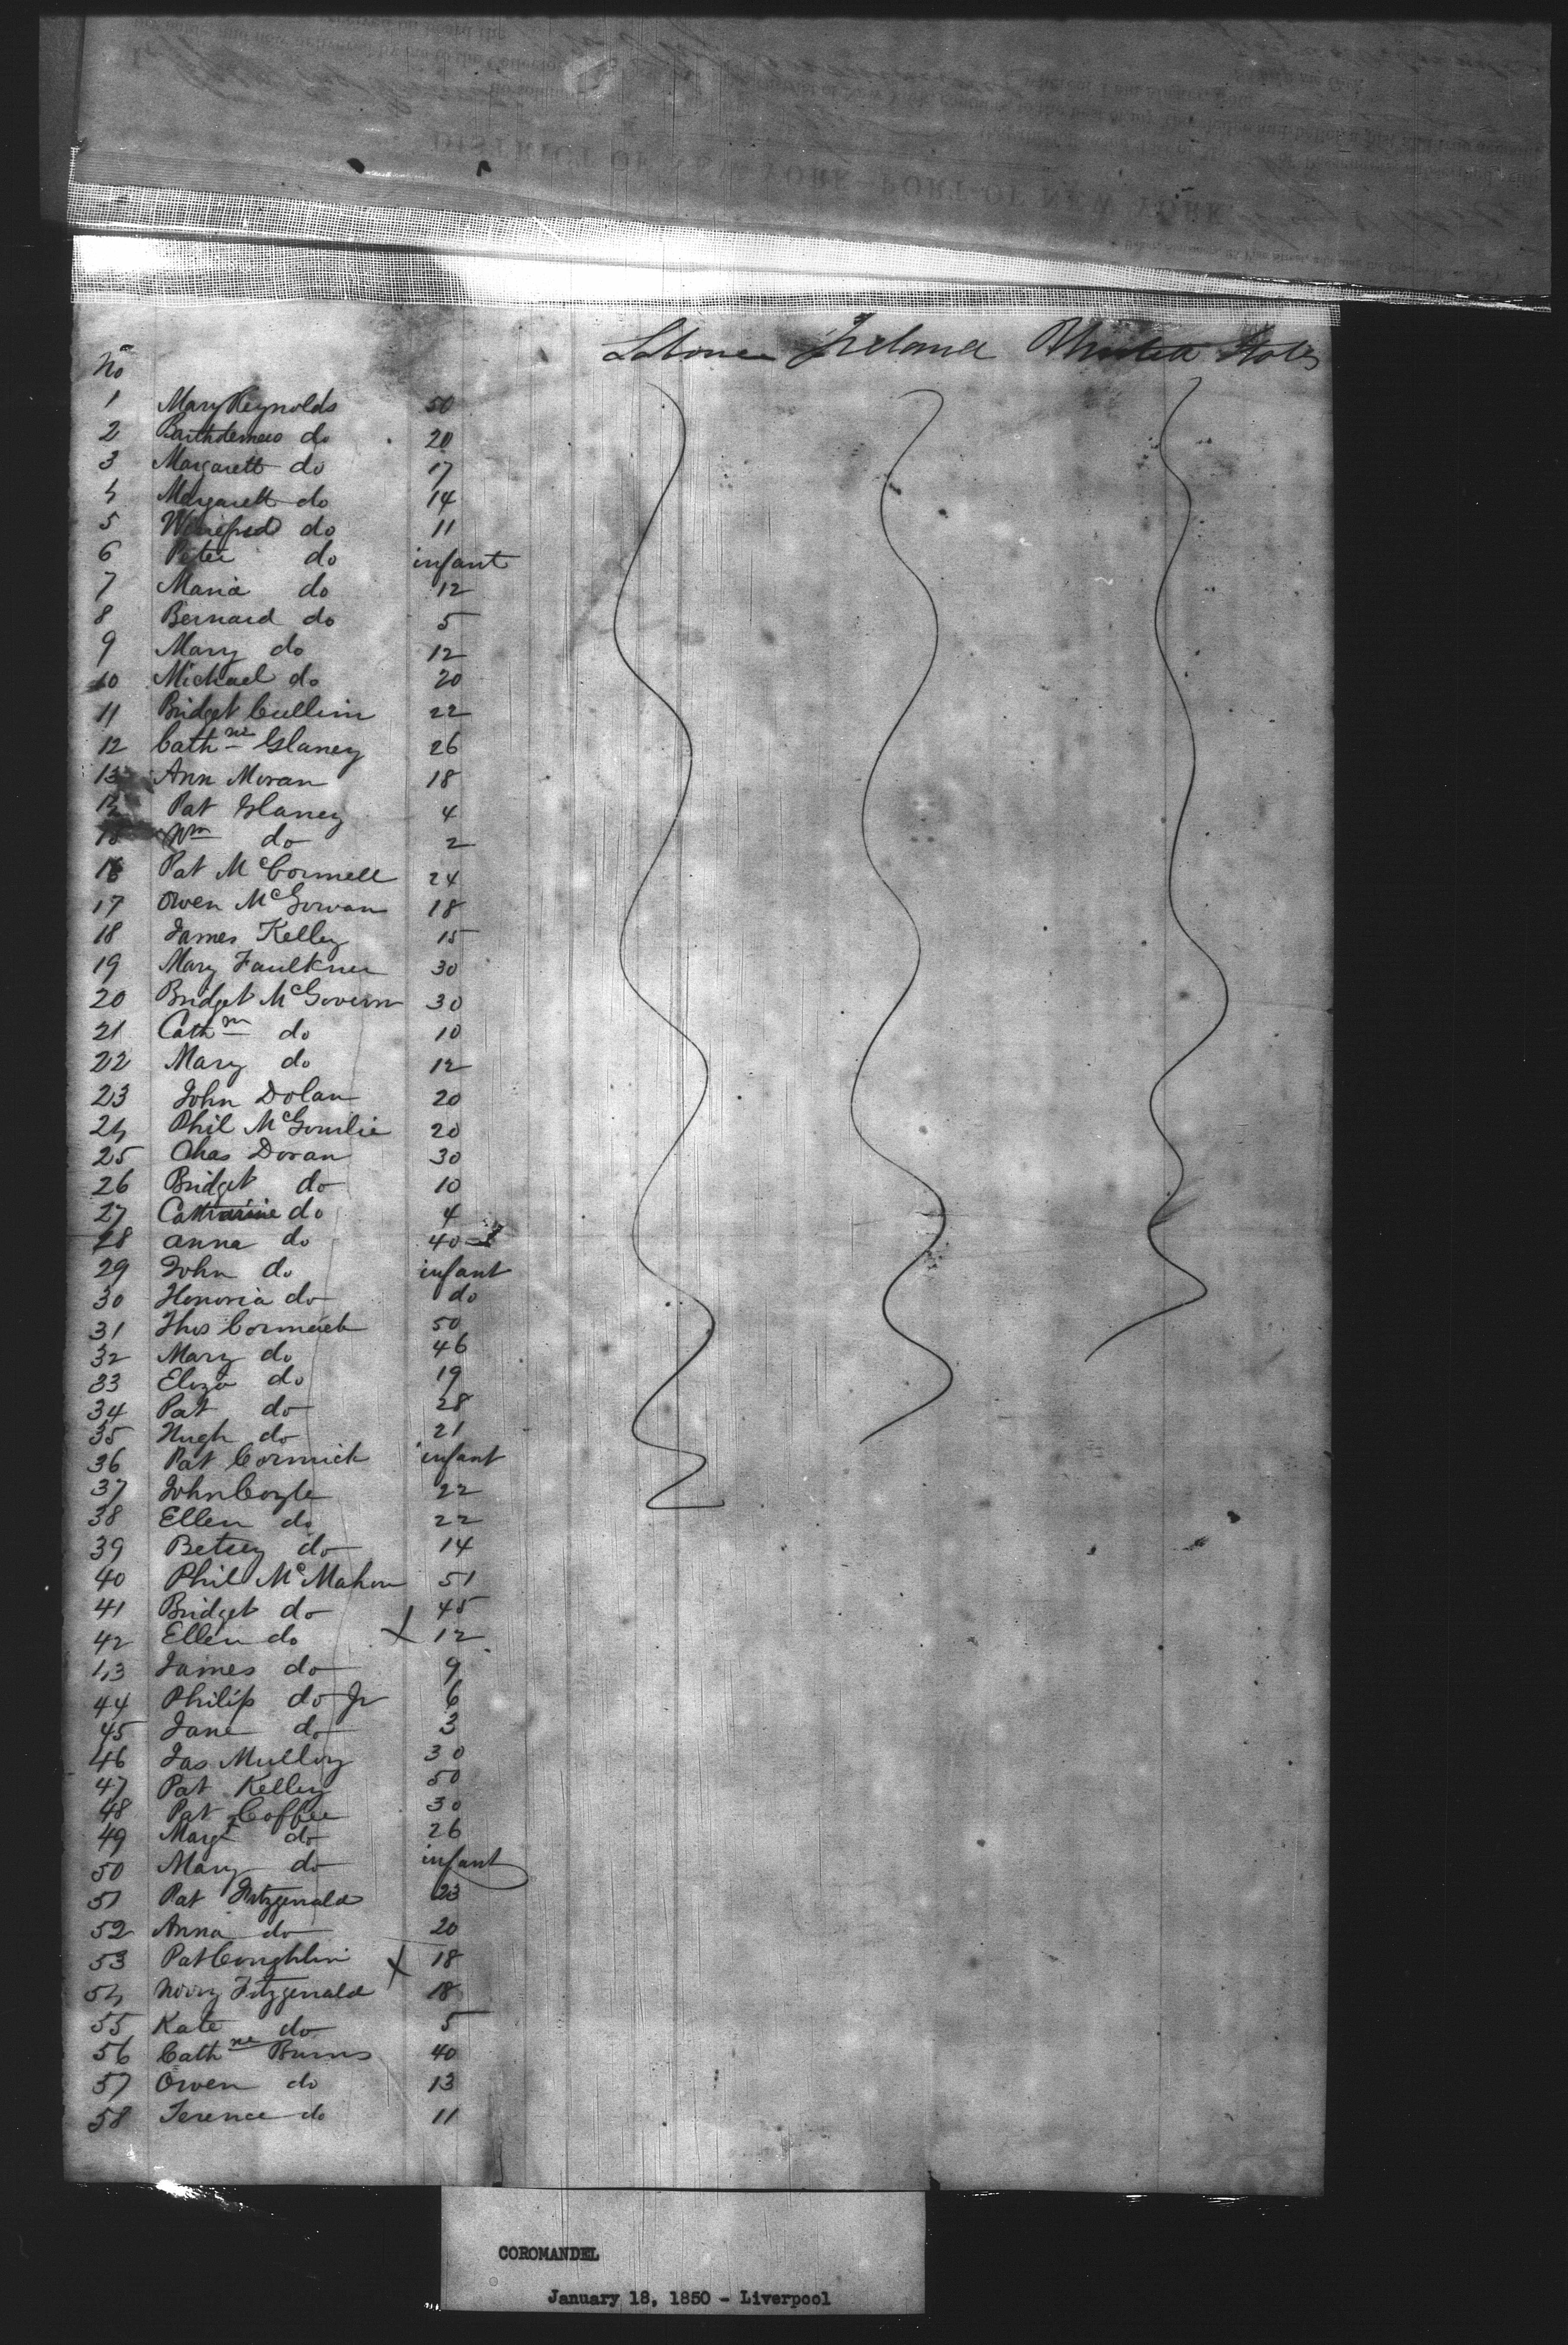 DISTRICT OF NEW YORK—PORT OF NEW YORK
No Ireland States
1 Mary Reynolds 50
2 Bartholemew do 20
3 Margarett do 17
4 Margarett do 14
5 Winefred do 11
6 Peter do infant
7 Maria do 12
8 Bernard do 5
9 Mary do 12
10 Michael do 20
11 Bridget Cullim 22
12 Cathne Glaney 26
13 Ann Moran 18
14 Pat Glaney 4
15 Wm do 2
16 Pat McCormell 24
17 Owen McGowan 18
18 James Kelley 15
19 Mary Faulkner 30
20 Bridget McGovern 30
21 Cathn do 10
22 Mary do 12
23 John Dolan 20
24 Phil McGourlie 20
25 Chas Doran 30
26 Bridget do 10
27 Catharine do 4
28 Anna do 40
29 John do infant
30 Honoria do do
31 Thos Cormick 50
32 Mary do 46
33 Eliza do 19
34 Pat do 28
35 Hugh do 21
36 Pat Cormick infant
37 John Coyle 22
38 Ellen do 22
39 Betsey do 14
40 Phil McMahon 51
41 Bridget do 45
42 Ellen do X 12
43 James do 9
44 Philip do Jr 6
45 Jane do 3
46 Jas Mulloy 30
47 Pat Kelley 50
48 Pat Coffee 30
49 Margt do 26
50 Mary do infant
51 Pat Fitzgerrald 23
52 Anna do 20
53 Pat Coughlin X 18
54 Norry Fitzgerrald 18
55 Kate do 5
56 Cathne Burns 40
57 Owen do 13
58 Terence do 11
COROMANDEL
January 18, 1850 - Liverpool